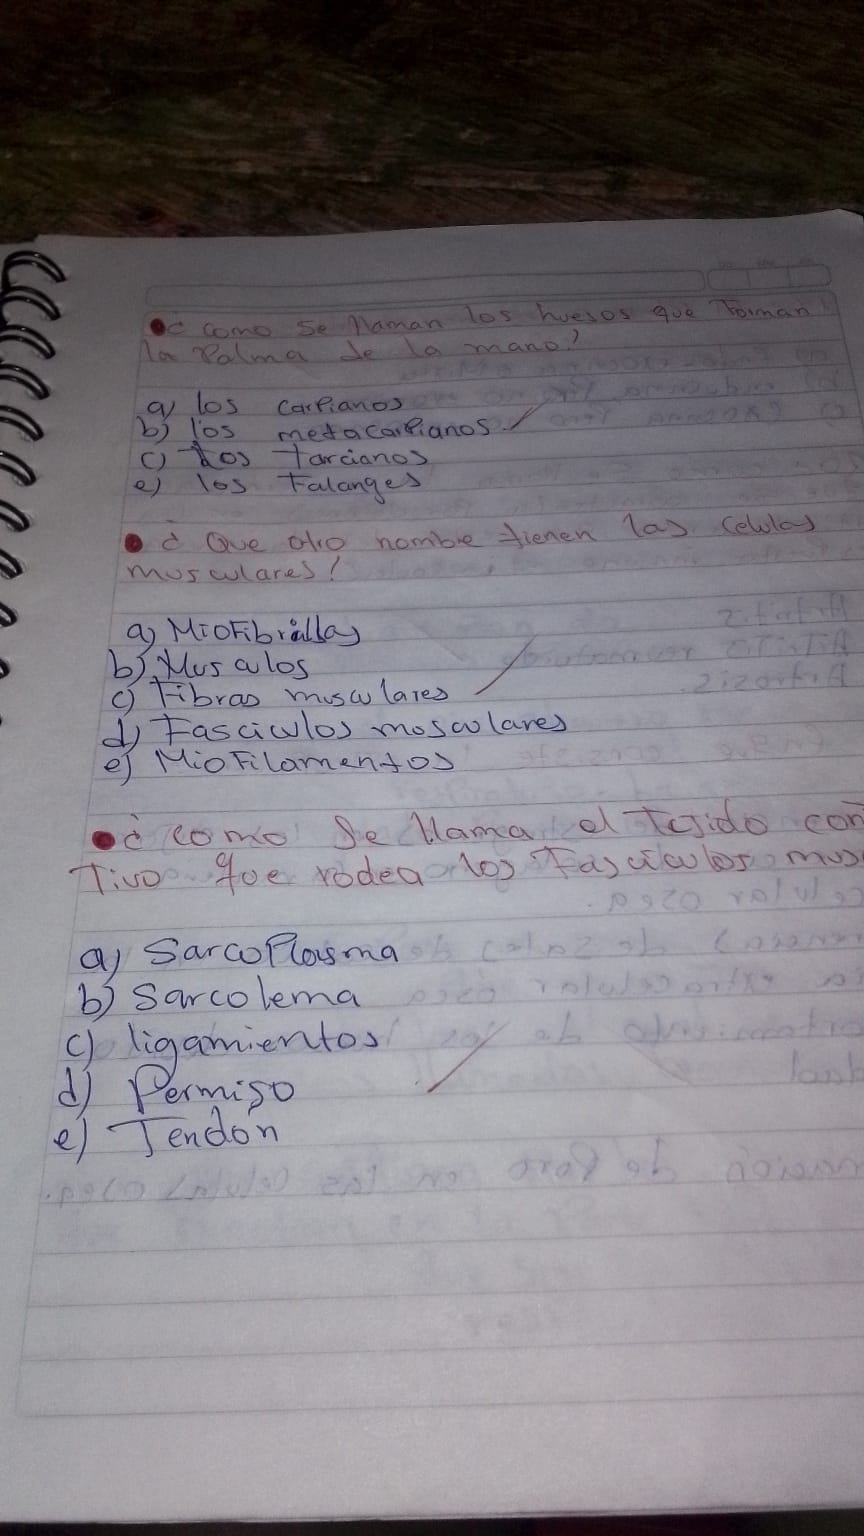 ¿ como se llaman los huesos que Forman
la Palma de la mano?
a) los carpianos
b) los metacarpianos
c) Los Tarcianos
e) los Falanges
¿ Que otro nombre tienen las celulas
musculares?
a) MioFibrillas
b) Musculos
c) Fibras musculares
d) Fasciculos musculares
e) MioFilamentos
¿ como Se llama el Tejido con
Tivo que rodea los Fasciculos mus
a) SarcoPlasma
b) Sarcolema
c) ligamientos
d) Permiso
e) Tendón